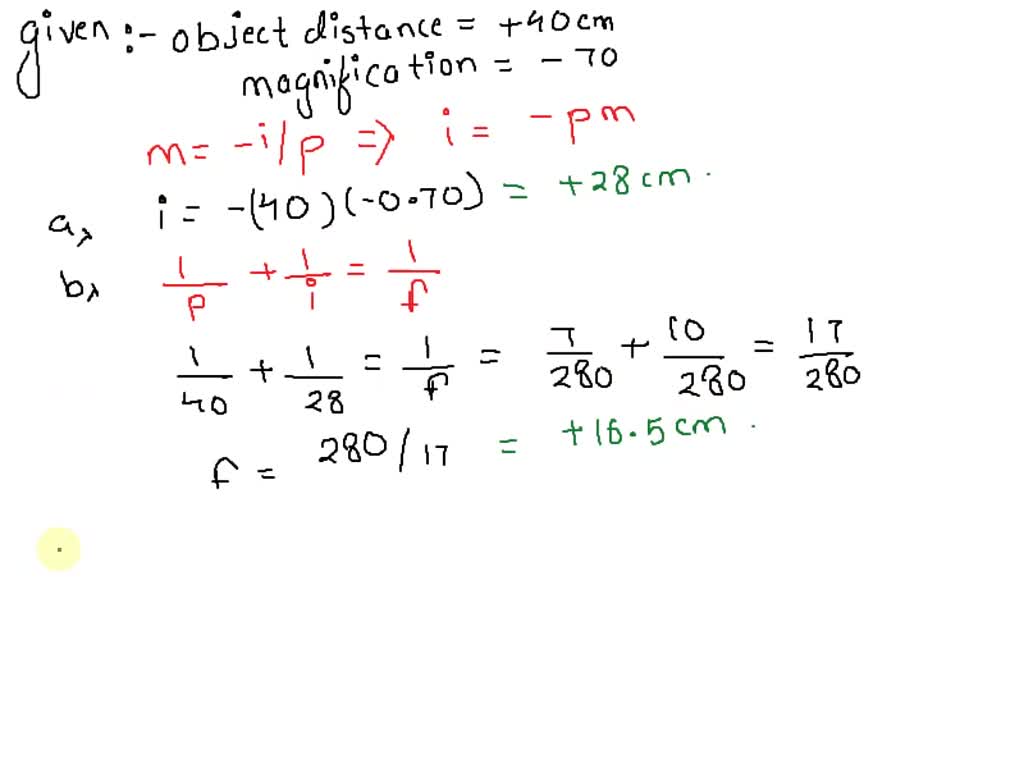 given :- object distance = +40cm
magnification = - 70
m = -i/p => i = -pm
a, i = -(40)(-0.70) = +28cm.
b, 1/p + 1/i = 1/f
1/40 + 1/28 = 1/f = 7/280 + 10/280 = 17/280
f = 280/17 = +16.5cm.